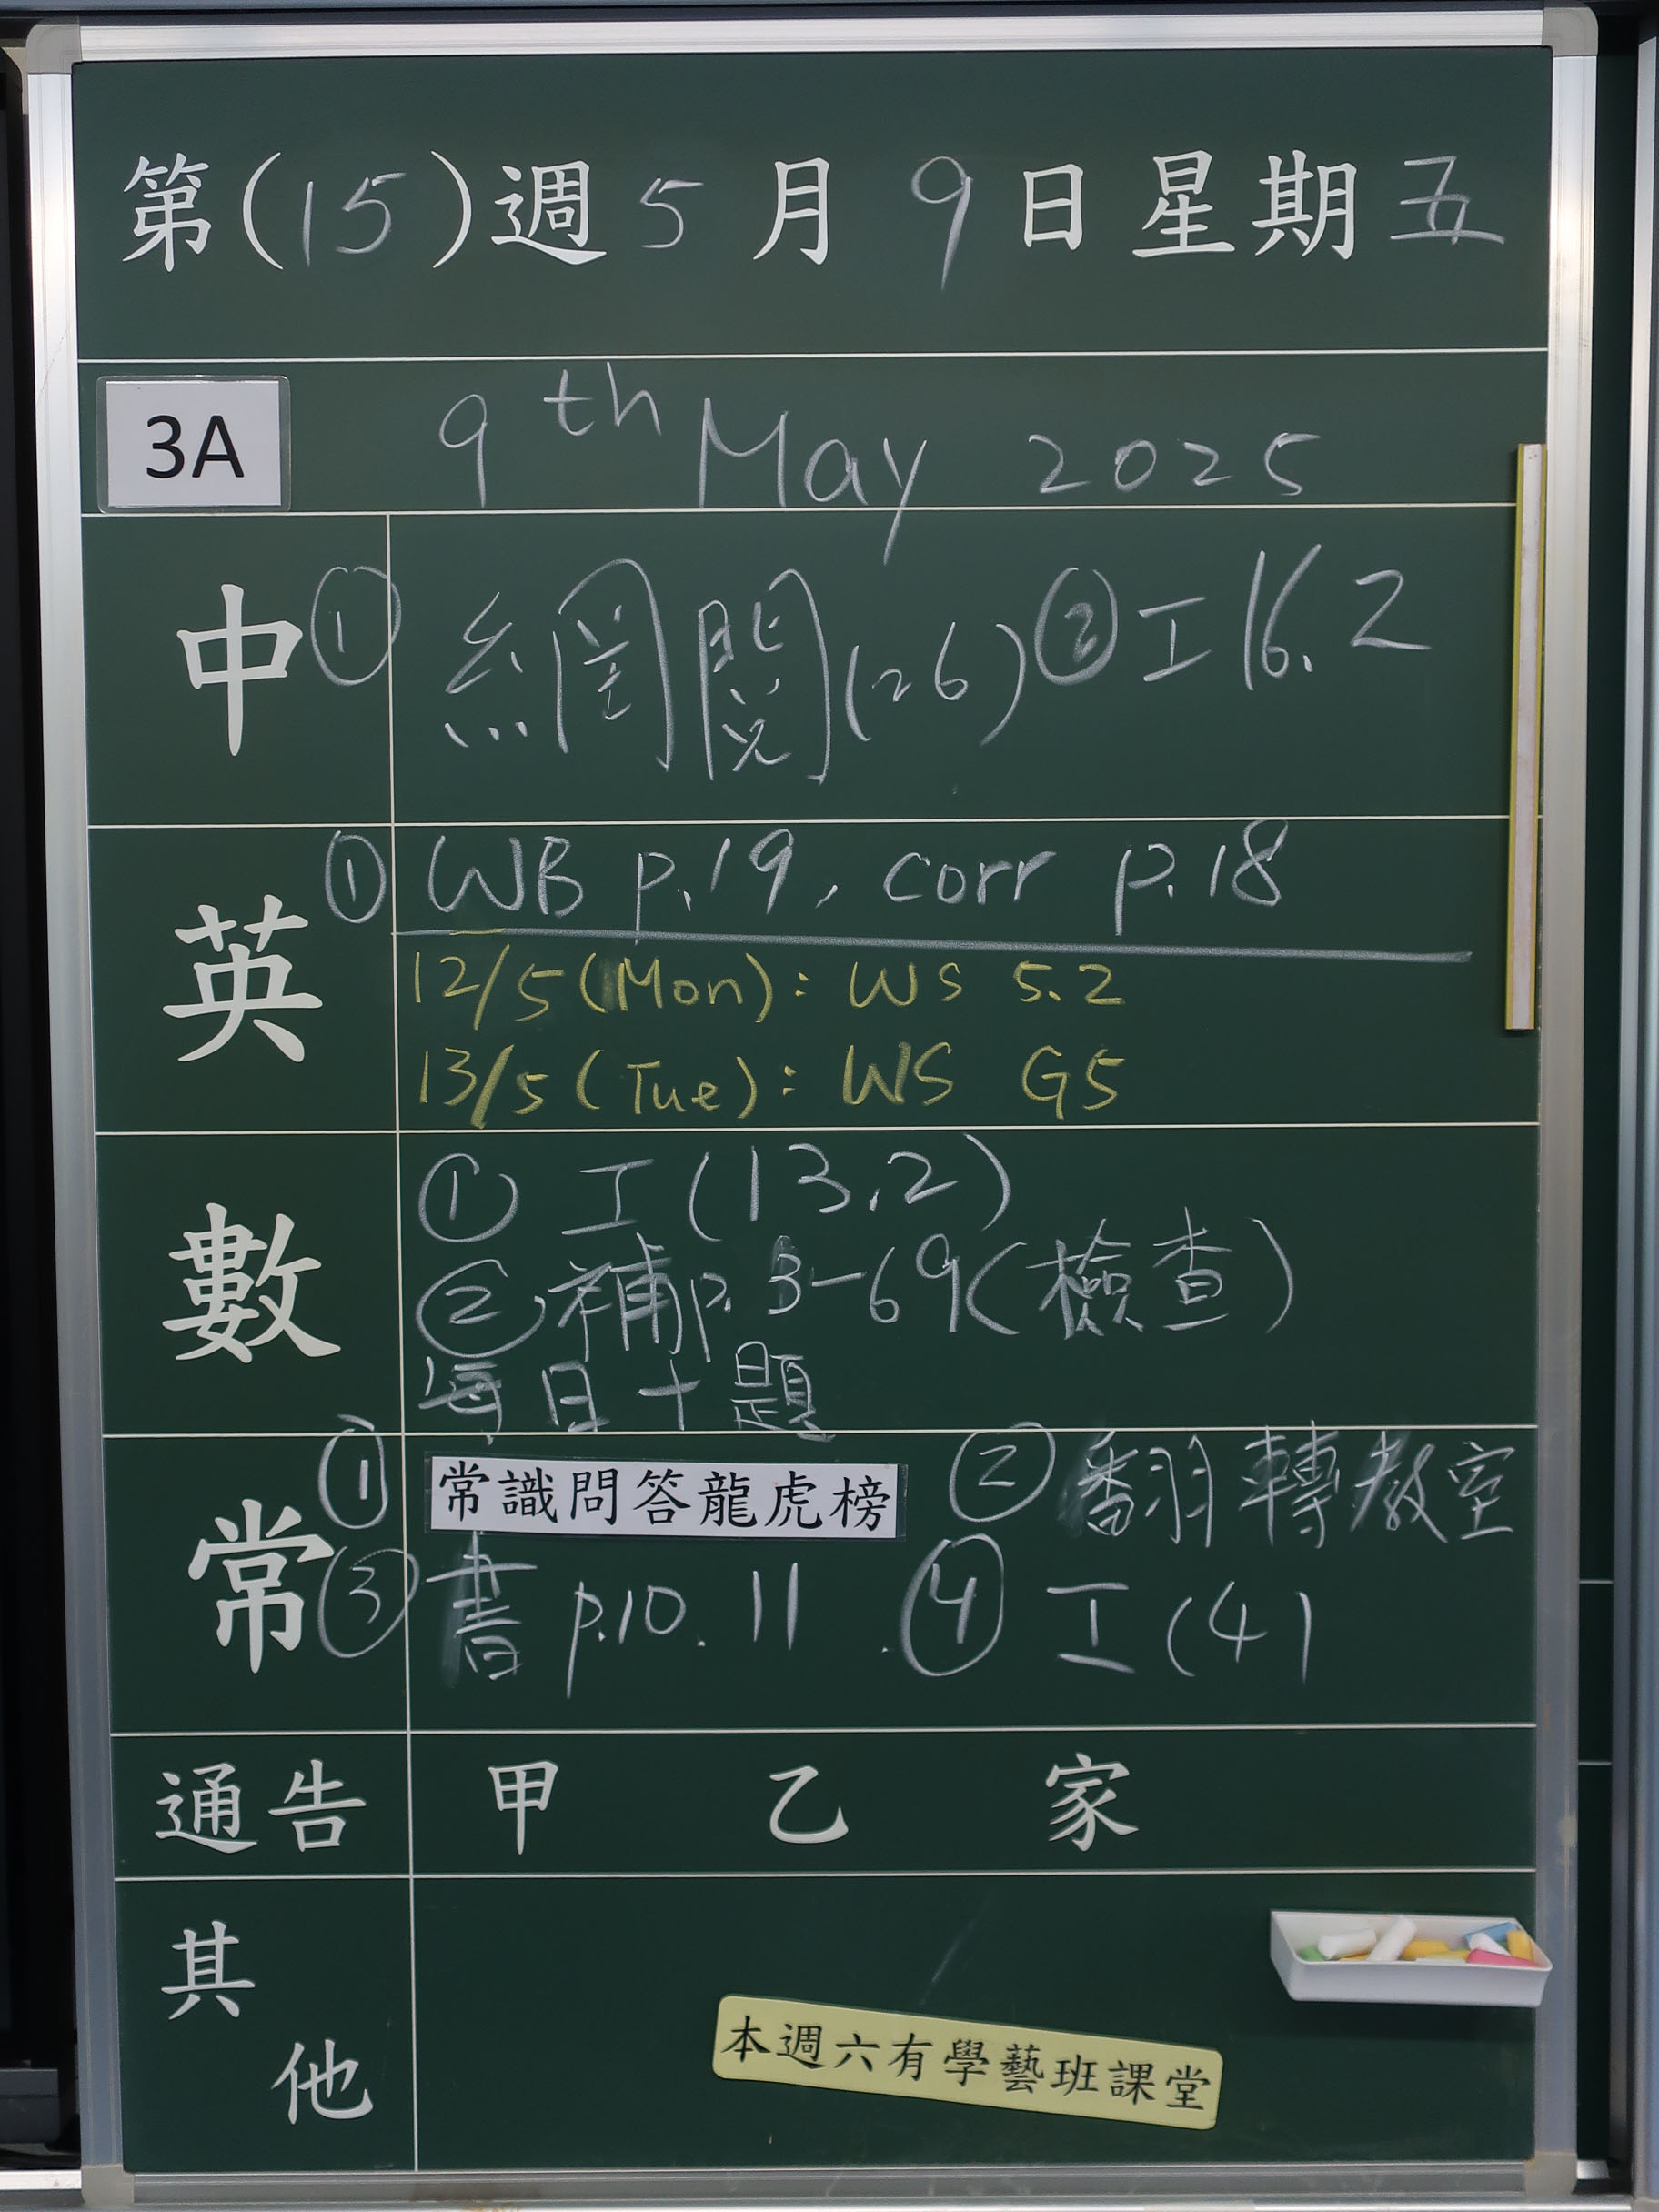 第(15)週5月9日星期五
3A 9th May 2025
中 ① 網閱(26) ② 工16.2
英 ① WB p.19, corr p.18
12/5(Mon): WS 5.2
13/5(Tue): WS G5
數 ① 工(13.2)
② 補p.3-69(檢查)
每日十題
常 ① 常識問答龍虎榜 ② 翻轉教室
③ 書p.10.11. ④ 工(4)
通告 甲 乙 家
其他
本週六有學藝班課堂